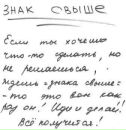 ЗНАК СВЫШЕ
Если ты хочешь
что-то сделать, но
не решаешься,
ждешь "знака свыше" -
- то это вам как
раз он! Иди и делай!
Всё получится!